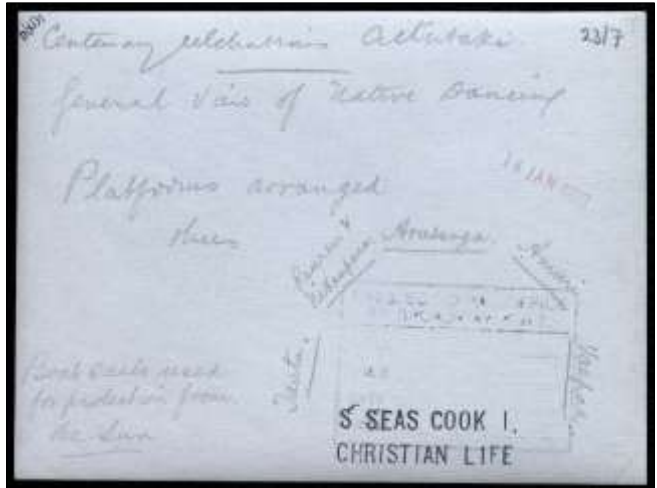 Centenary celebrations Aitutaki
23/7
General View of Native Dancing
Platforms arranged
thus
JAN
Arutanga
Amuri
Vaipae
Tautu
Boat sails used
for protection from
the Sun
S SEAS COOK I.
CHRISTIAN LIFE